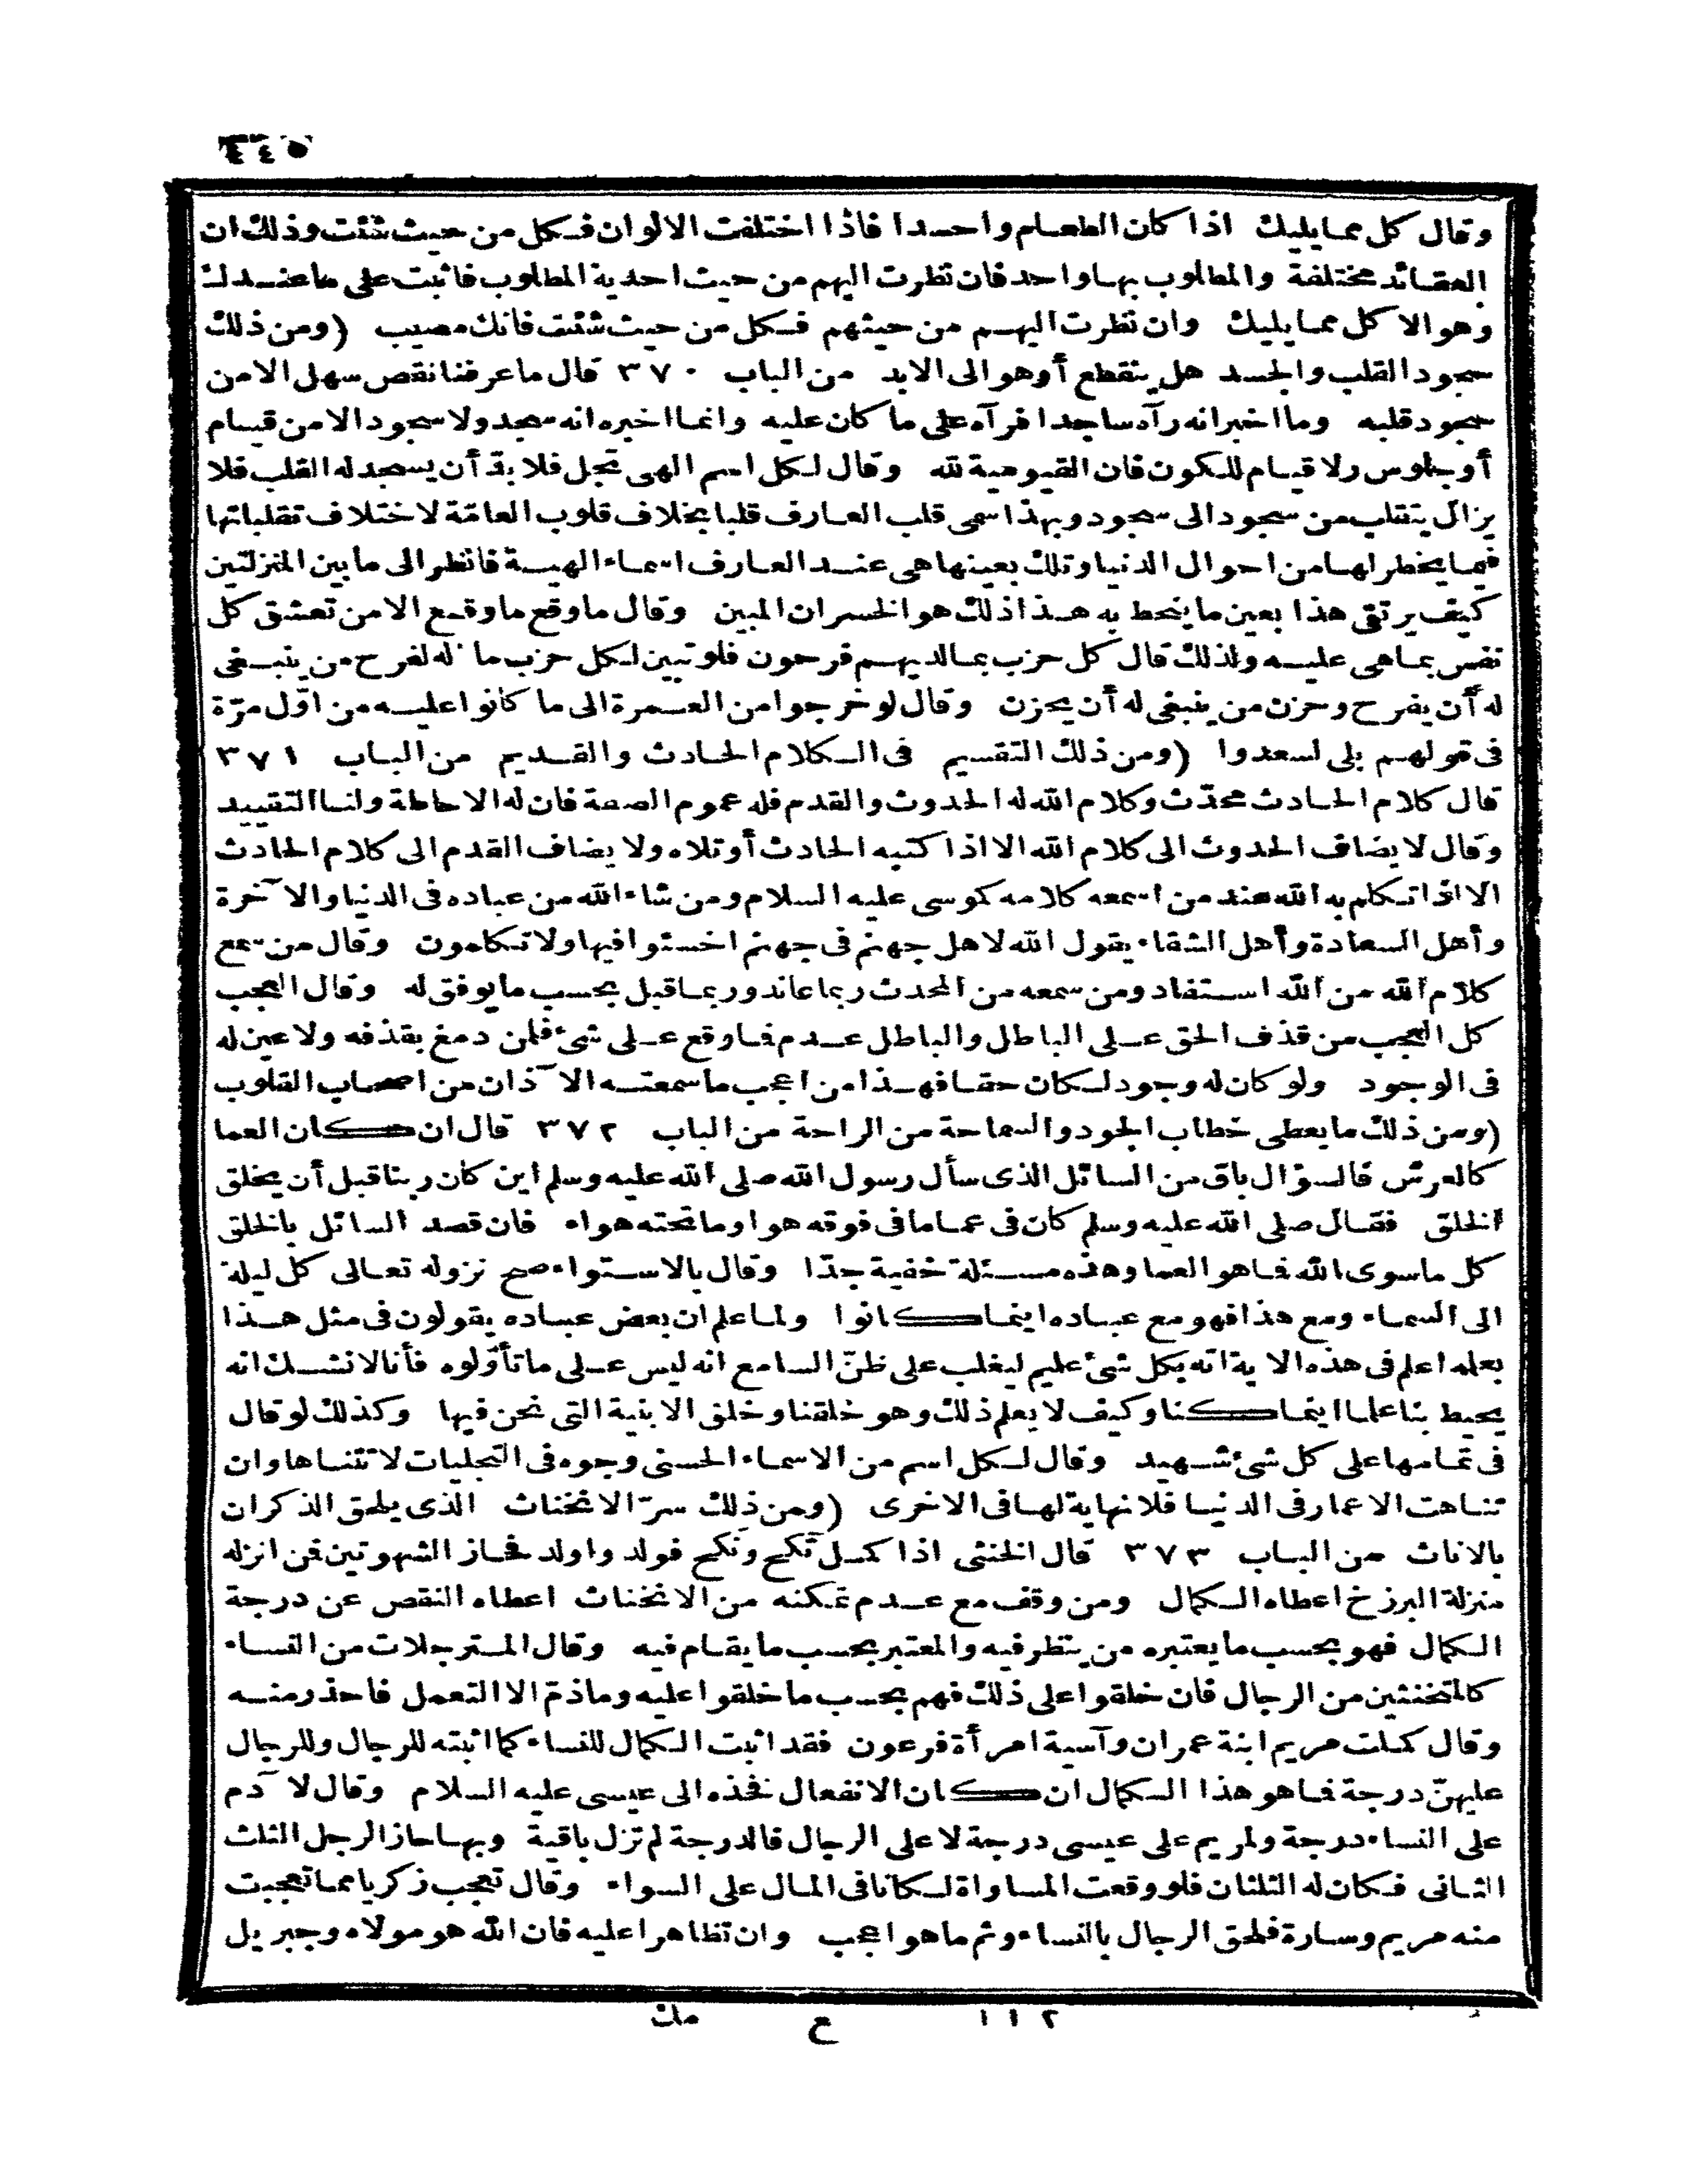 وقال كل مما يليك اذا كان الطعام واحدا فاذا اختلفت الالوان فكل من حيث شئت وذلك ان
العقائد مختلفة والمطلوب بها واحد فان نظرت اليهم من حيث احدية المطلوب فاثبت على ما عندك
وهو الا كل مما يليك وان نظرت اليهم من حيثهم فكل من حيث شئت فانك مصيب (ومن ذلك
سجود القلب والجسد هل ينقطع أو هو الى الابد من الباب ٣٧٠ قال ما عرفنا نقص سهل الا من
سجود قلبه وما اخبر انه رآه ساجدا فرآه على ما كان عليه وانما اخبره انه سجد ولا سجود الا من قيام
أو جلوس ولا قيام للكون فان القيومية لله وقال لكل اسم الهى تجل فلا بد أن يسجد له القلب فلا
يزال يتقلب من سجود الى سجود وبهذا سمى قلب العارف قلبا بخلاف قلوب العامّة لاختلاف تقلباتها
فيما يخطر لها من احوال الدنيا وتلك بعينها هى عند العارف اسماء الهية فانظر الى ما بين المنزلتين
كيف يرتقى هذا بعين ما ينحط به هذا ذلك هو الخسران المبين وقال ما وقع ما وقع الا من تعشق كل
نفس بما هى عليه ولذلك قال كل حزب بما لديهم فرحون فلو تبين لكل حزب ما له لفرح من ينبغى
له أن يفرح وحزن من ينبغى له أن يحزن وقال لو خرجوا من الغمرة الى ما كانوا عليه من اوّل مرّة
فى قولهم بلى لسعدوا (ومن ذلك التقسيم فى الكلام الحادث والقديم من الباب ٣٧١
قال كلام الحادث محدّث وكلام الله له الحدوث والقدم فله عموم الصفة فان له الاحاطة ولنا التقييد
وقال لا يضاف الحدوث الى كلام الله الا اذا كتبه الحادث أو تلاه ولا يضاف القدم الى كلام الحادث
الا اذا تكلم به الله عند من اسمعه كلامه كموسى عليه السلام ومن شاء الله من عباده فى الدنيا والآخرة
وأهل السعادة وأهل الشقاء يقول الله لاهل جهنم فى جهنم اخسئوا فيها ولا تكلمون وقال من سمع
كلام الله من الله استفاد ومن سمعه من المحدث ربما عاند وربما قبل بحسب ما يوفق له وقال العجب
كل العجب من قذف الحق على الباطل والباطل عدم فما وقع على شئ فلمن دمغ بقذفه ولا عين له
فى الوجود ولو كان له وجود لكان حقا فهذا من اعجب ما سمعته الآذان من اصحاب القلوب
(ومن ذلك ما يعطى خطاب الجود والسماحة من الراحة من الباب ٣٧٢ قال ان كان العما
كالعرش فالسؤال باق من السائل الذى سأل رسول الله صلى الله عليه وسلم اين كان ربنا قبل أن يخلق
الخلق فقال صلى الله عليه وسلم كان فى عما ما فى فوقه هوا وما تحته هواء فان قصد السائل بالخلق
كل ما سوى الله فما هو العما وهذه مسئلة خفية جدّا وقال بالاستواء صح نزوله تعالى كل ليلة
الى السماء ومع هذا فهو مع عباده اينما كانوا ولما علم ان بعض عباده يقولون فى مثل هذا
بعلمه اعلم فى هذه الاية انه بكل شئ عليم ليغلب على ظنّ السامع انه ليس على ما تأوّلوه فأنا لا نشك انه
يحيط بنا علما اينما كنا وكيف لا يعلم ذلك وهو خلقنا وخلق الاينية التى نحن فيها وكذلك لو قال
فى تمامها على كل شئ شهيد وقال لكل اسم من الاسماء الحسنى وجوه فى التجليات لا تتناها وان
تناهت الاعمار فى الدنيا فلا نهاية لها فى الاخرى (ومن ذلك سرّ الانخناث الذى يلحق الذكران
بالاناث من الباب ٣٧٣ قال الخنثى اذا كمل نَكح ونُكح فولد واولد فحاز الشهوتين فمن انزله
منزلة البرزخ اعطاه الكمال ومن وقف مع عدم تمكنه من الانخناث اعطاه النقص عن درجة
الكمال فهو بحسب ما يعتبره من ينظر فيه والمعتبر بحسب ما يقام فيه وقال المسترجلات من النساء
كالمتخنثين من الرجال فان خلقوا على ذلك فهم بحسب ما خلقوا عليه وما ذمّ الا التعمل فاحذر منه
وقال كملت مريم ابنة عمران وآسية امرأة فرعون فقد اثبت الكمال للنساء كما اثبته للرجال وللرجال
عليهنّ درجة فما هو هذا الكمال ان كان الانفعال فخذه الى عيسى عليه السلام وقال لآدم
على النساء درجة ولمريم على عيسى درجة لا على الرجال فالدرجة لم تزل باقية وبها حاز الرجل الثلث
الثانى فكان له الثلثان فلو وقعت المساواة لكانا فى المال على السواء وقال تعجب زكريا مما تعجبت
منه مريم وسارة فلحق الرجال بالنساء وثم ما هو اعجب وان تظاهرا عليه فان الله هو مولاه وجبريل
١١٢ ع مك